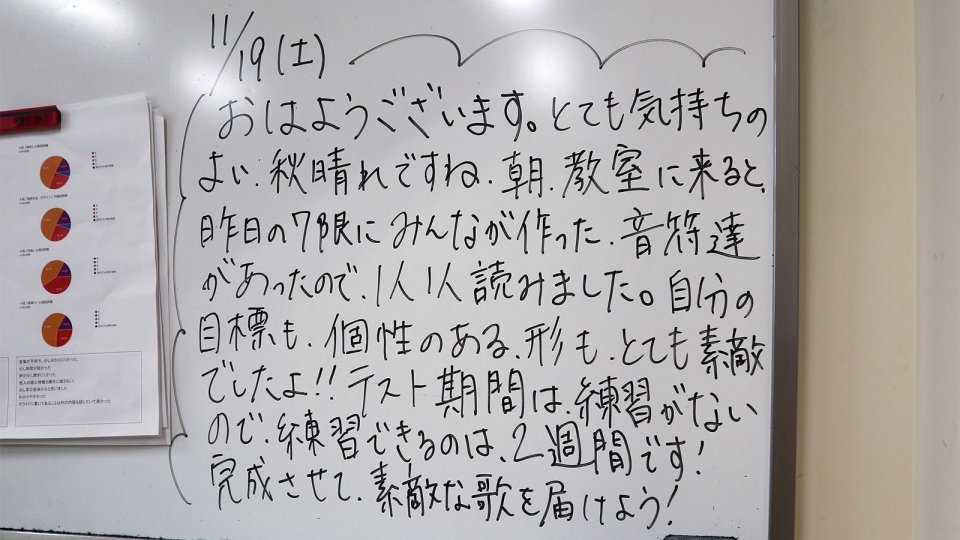 11/19(土)
おはようございます。とても気持ちの
よい、秋晴れですね、朝、教室に来ると、
昨日の7限にみんなが作った、音符達
があったので、1人1人読みました。自分の
目標も、個性のある、形も、とても素敵
でしたよ!!テスト期間は、練習がない
ので、練習できるのは、2週間です!
完成させて、素敵な歌を届けよう!